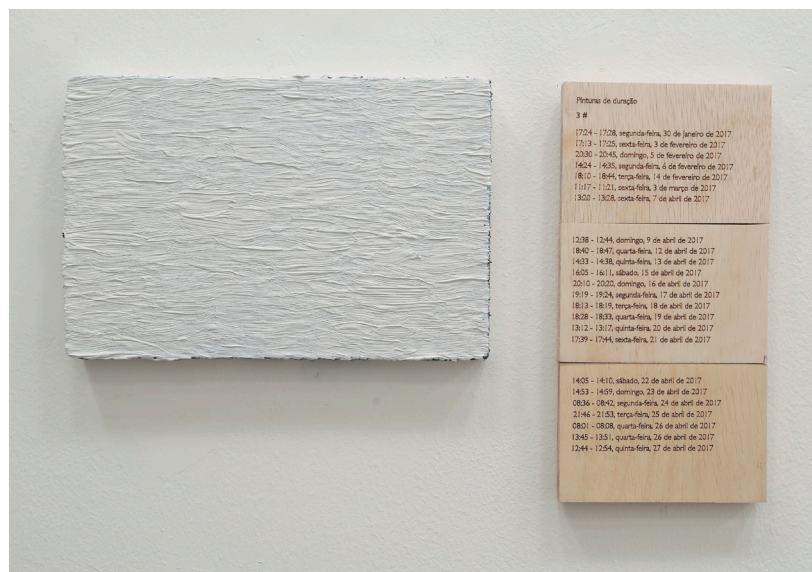 Pinturas de duração
3 #
17:24 - 17:28, segunda-feira, 30 de janeiro de 2017
17:13 - 17:25, sexta-feira, 3 de fevereiro de 2017
20:30 - 20:45, domingo, 5 de fevereiro de 2017
14:24 - 14:35, segunda-feira, 6 de fevereiro de 2017
18:10 - 18:44, terça-feira, 14 de fevereiro de 2017
11:17 - 11:21, sexta-feira, 3 de março de 2017
13:20 - 13:28, sexta-feira, 7 de abril de 2017
12:38 - 12:44, domingo, 9 de abril de 2017
18:40 - 18:47, quarta-feira, 12 de abril de 2017
14:33 - 14:38, quinta-feira, 13 de abril de 2017
16:05 - 16:11, sábado, 15 de abril de 2017
20:10 - 20:20, domingo, 16 de abril de 2017
19:19 - 19:24, segunda-feira, 17 de abril de 2017
18:13 - 18:19, terça-feira, 18 de abril de 2017
18:28 - 18:33, quarta-feira, 19 de abril de 2017
13:12 - 13:17, quinta-feira, 20 de abril de 2017
17:39 - 17:44, sexta-feira, 21 de abril de 2017
14:05 - 14:10, sábado, 22 de abril de 2017
14:53 - 14:59, domingo, 23 de abril de 2017
08:36 - 08:42, segunda-feira, 24 de abril de 2017
21:46 - 21:53, terça-feira, 25 de abril de 2017
08:01 - 08:08, quarta-feira, 26 de abril de 2017
13:45 - 13:51, quarta-feira, 26 de abril de 2017
12:44 - 12:54, quinta-feira, 27 de abril de 2017